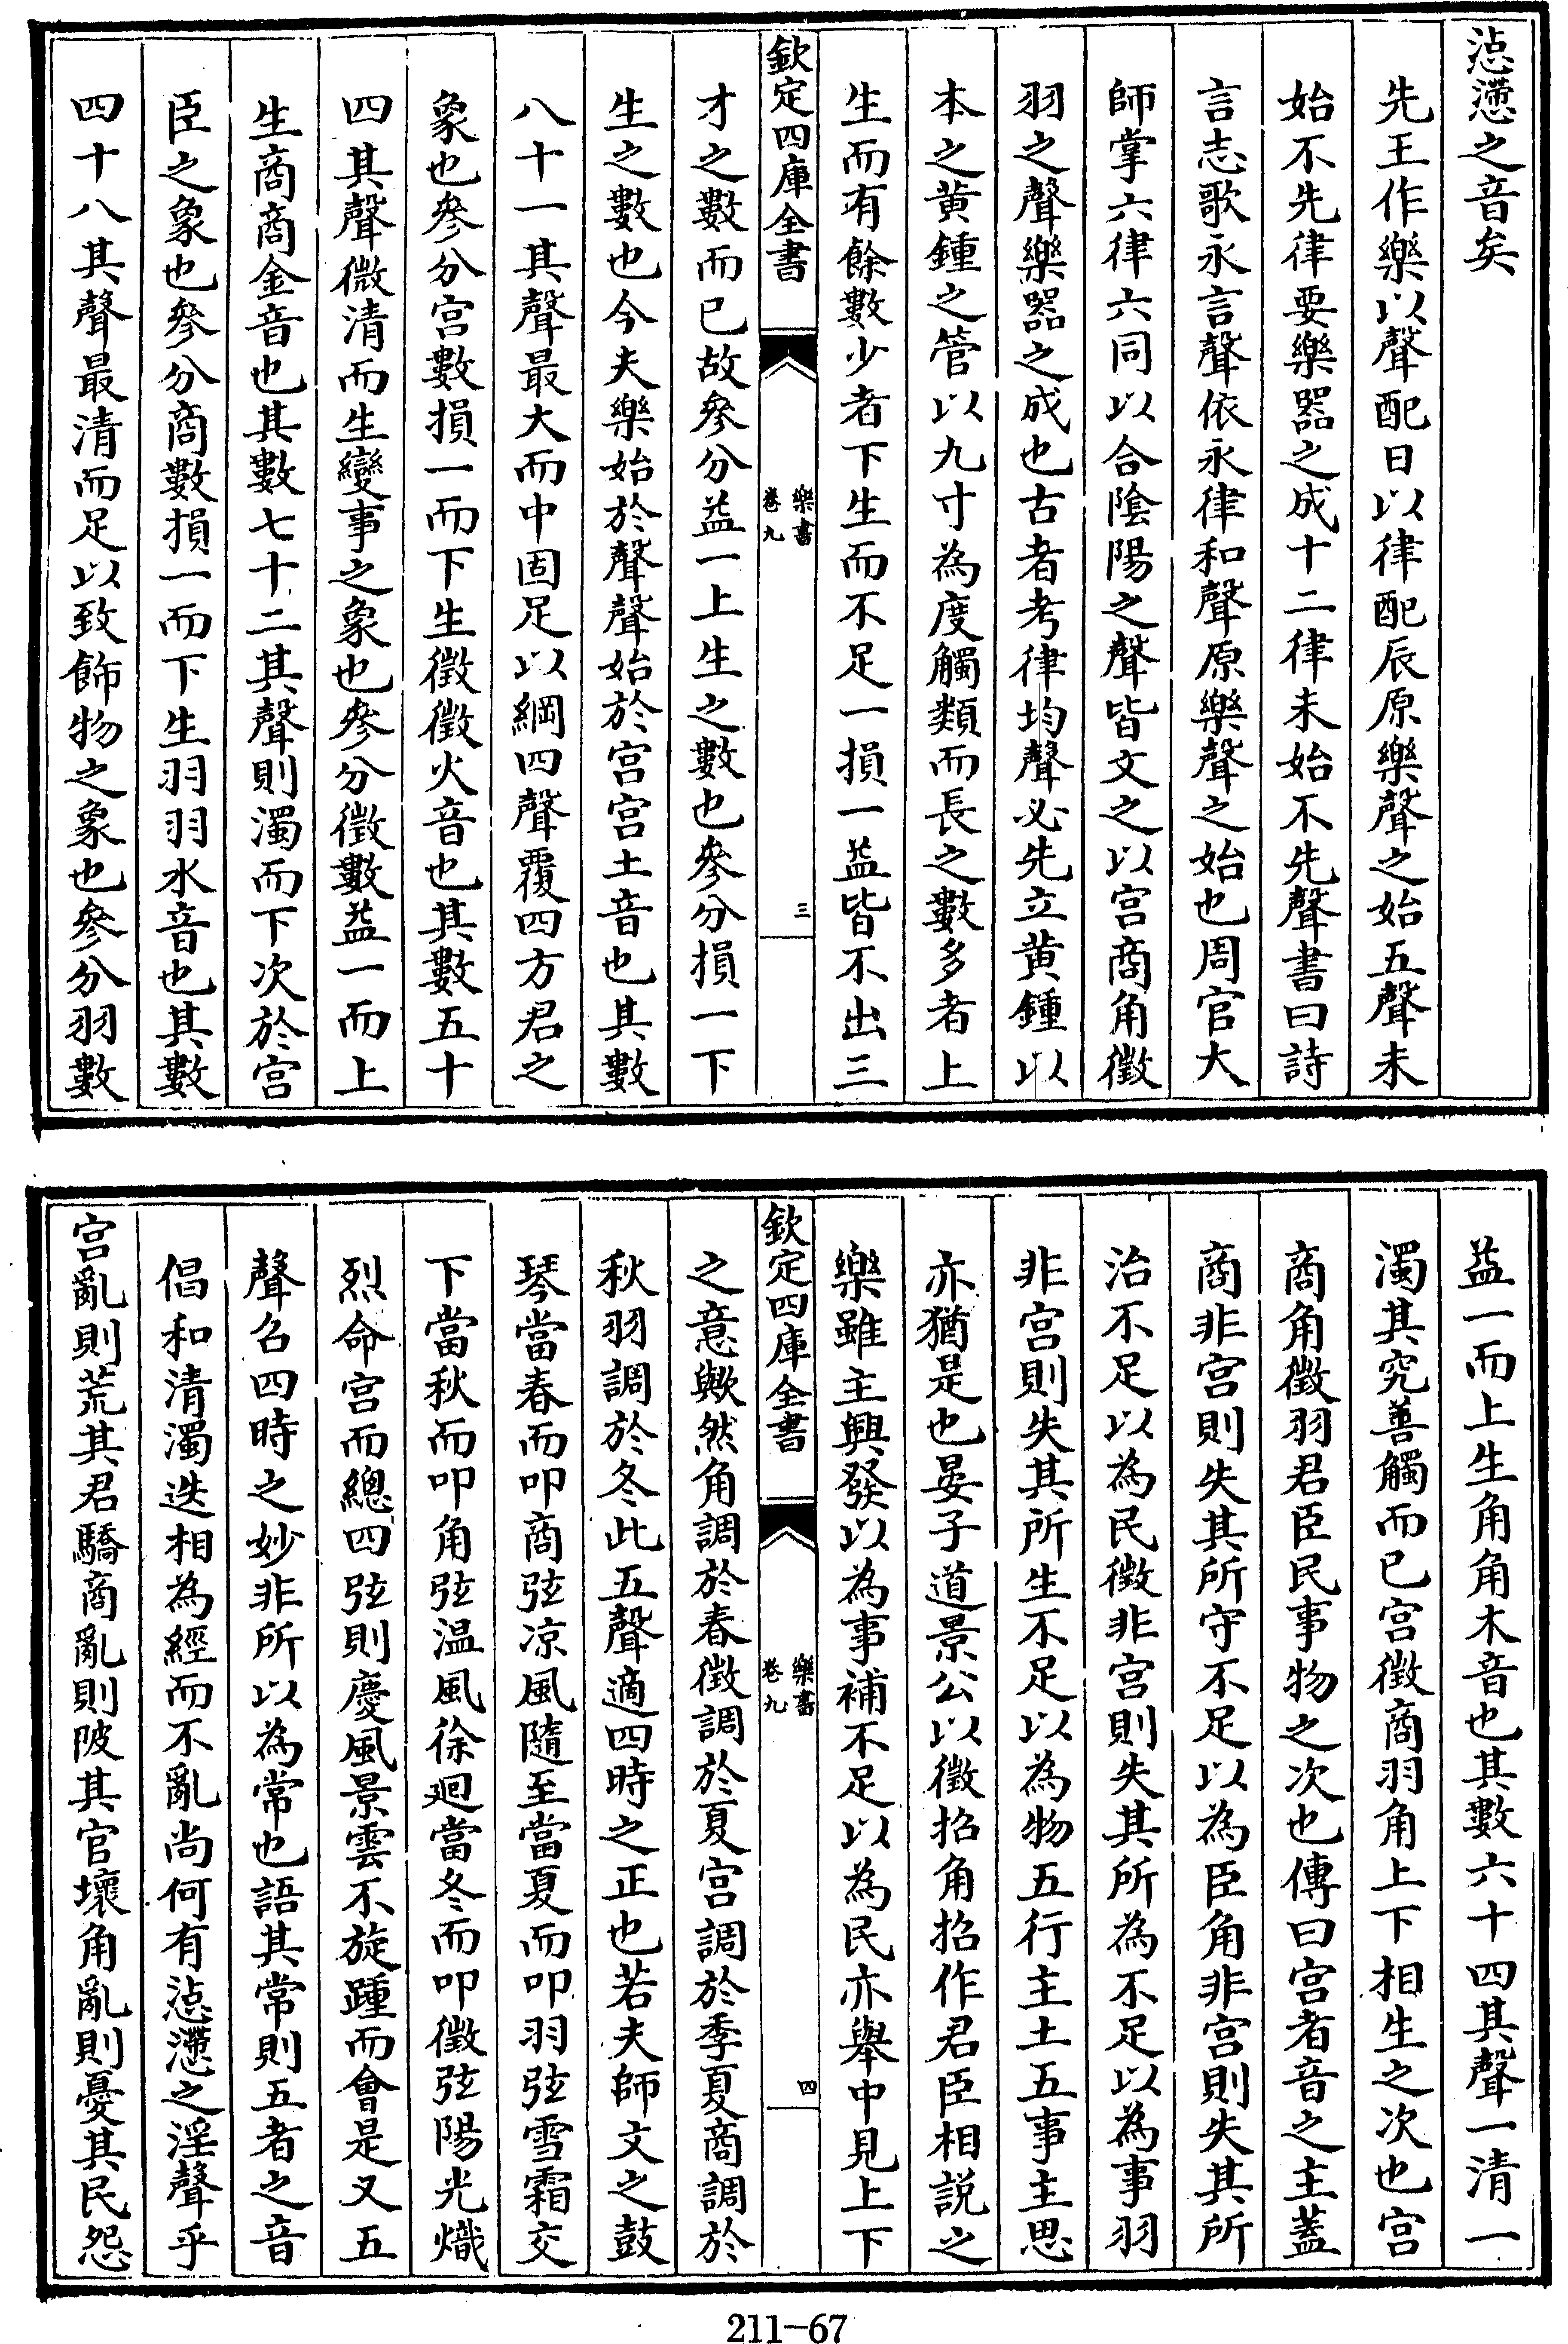 惉懘之音矣
先王作樂以聲配日以律配辰原樂聲之始五聲未
始不先律要樂器之成十二律未始不先聲書曰詩
言志歌永言聲依永律和聲原樂聲之始也周官大
師掌六律六同以合陰陽之聲皆文之以宫商角徵
羽之聲樂器之成也古者考律均聲必先立黄鍾以
本之黄鍾之管以九寸為度觸類而長之數多者上
生而有餘數少者下生而不足一損一益皆不出三
欽定四庫全書
樂書
卷九
三
才之數而已故參分益一上生之數也參分損一下
生之數也今夫樂始於聲聲始於宫宫土音也其數
八十一其聲最大而中固足以綱四聲覆四方君之
象也參分宫數損一而下生徵徵火音也其數五十
四其聲微清而生變事之象也參分徵數益一而上
生商商金音也其數七十二其聲則濁而下次於宫
臣之象也參分商數損一而下生羽羽水音也其數
四十八其聲最清而足以致飾物之象也參分羽數
益一而上生角角木音也其數六十四其聲一清一
濁其究善觸而已宫徵商羽角上下相生之次也宫
商角徵羽君臣民事物之次也傳曰宫者音之主蓋
商非宫則失其所守不足以為臣角非宫則失其所
治不足以為民徵非宫則失其所為不足以為事羽
非宫則失其所生不足以為物五行主土五事主思
亦猶是也晏子道景公以徵招角招作君臣相説之
樂雖主興發以為事補不足以為民亦舉中見上下
欽定四庫全書
樂書
卷九
四
之意歟然角調於春徵調於夏宫調於季夏商調於
秋羽調於冬此五聲適四時之正也若夫師文之鼓
琴當春而叩商弦凉風隨至當夏而叩羽弦雪霜交
下當秋而叩角弦温風徐廻當冬而叩徵弦陽光熾
烈命宫而總四弦則慶風景雲不旋踵而會是又五
聲召四時之妙非所以為常也語其常則五者之音
倡和清濁迭相為經而不亂尚何有惉懘之淫聲乎
宫亂則荒其君驕商亂則陂其官壞角亂則憂其民怨
211-67